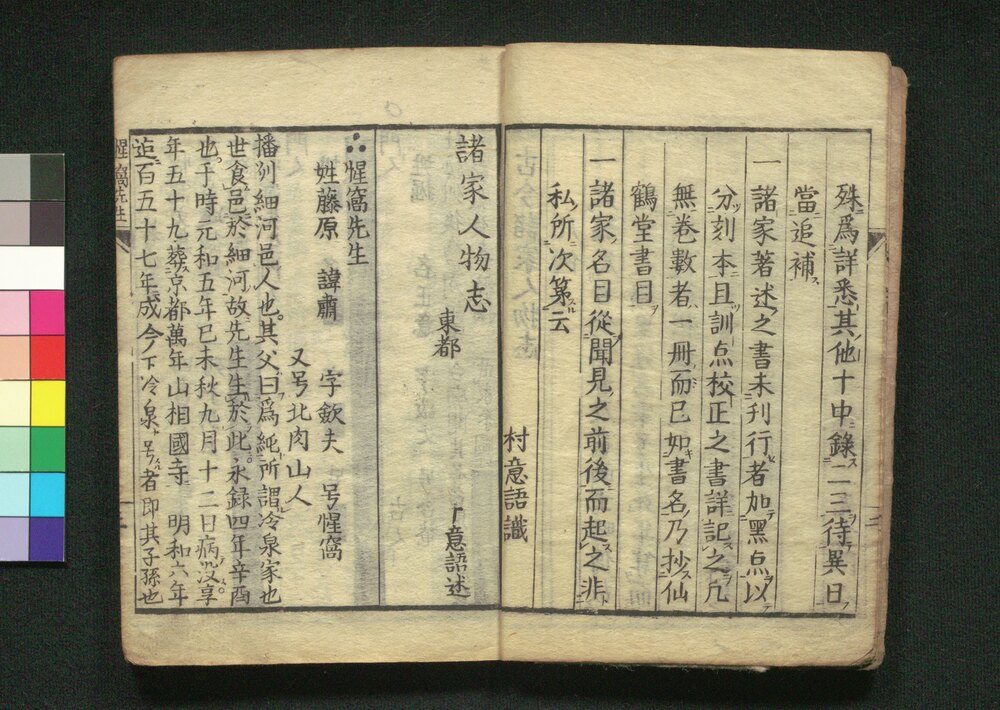 殊爲詳悉其他十中錄二三待異日
當追補
一諸家著述之書未刋行者加黑点以
分刻本且訓点校正之書詳記之凡
無巻數者一冊而已如書名乃抄仙
鶴堂書目
一諸家名目從聞見之前後而起之非
私所次第云
村意語識
諸家人物志
東都
意語述
惺窩先生
姓藤原 諱肅 字歛夫 号惺窩
又号北肉山人
播州細河邑人也其父曰爲純所謂冷泉家也
世食邑於細河故先生生於此永録四年辛酉
也于時元和五年巳未秋九月十二日病没享
年五十九葬京都萬年山相國寺 明和六年
迄百五十七年成今下冷泉号者即其子孫也
惺窩先生
二